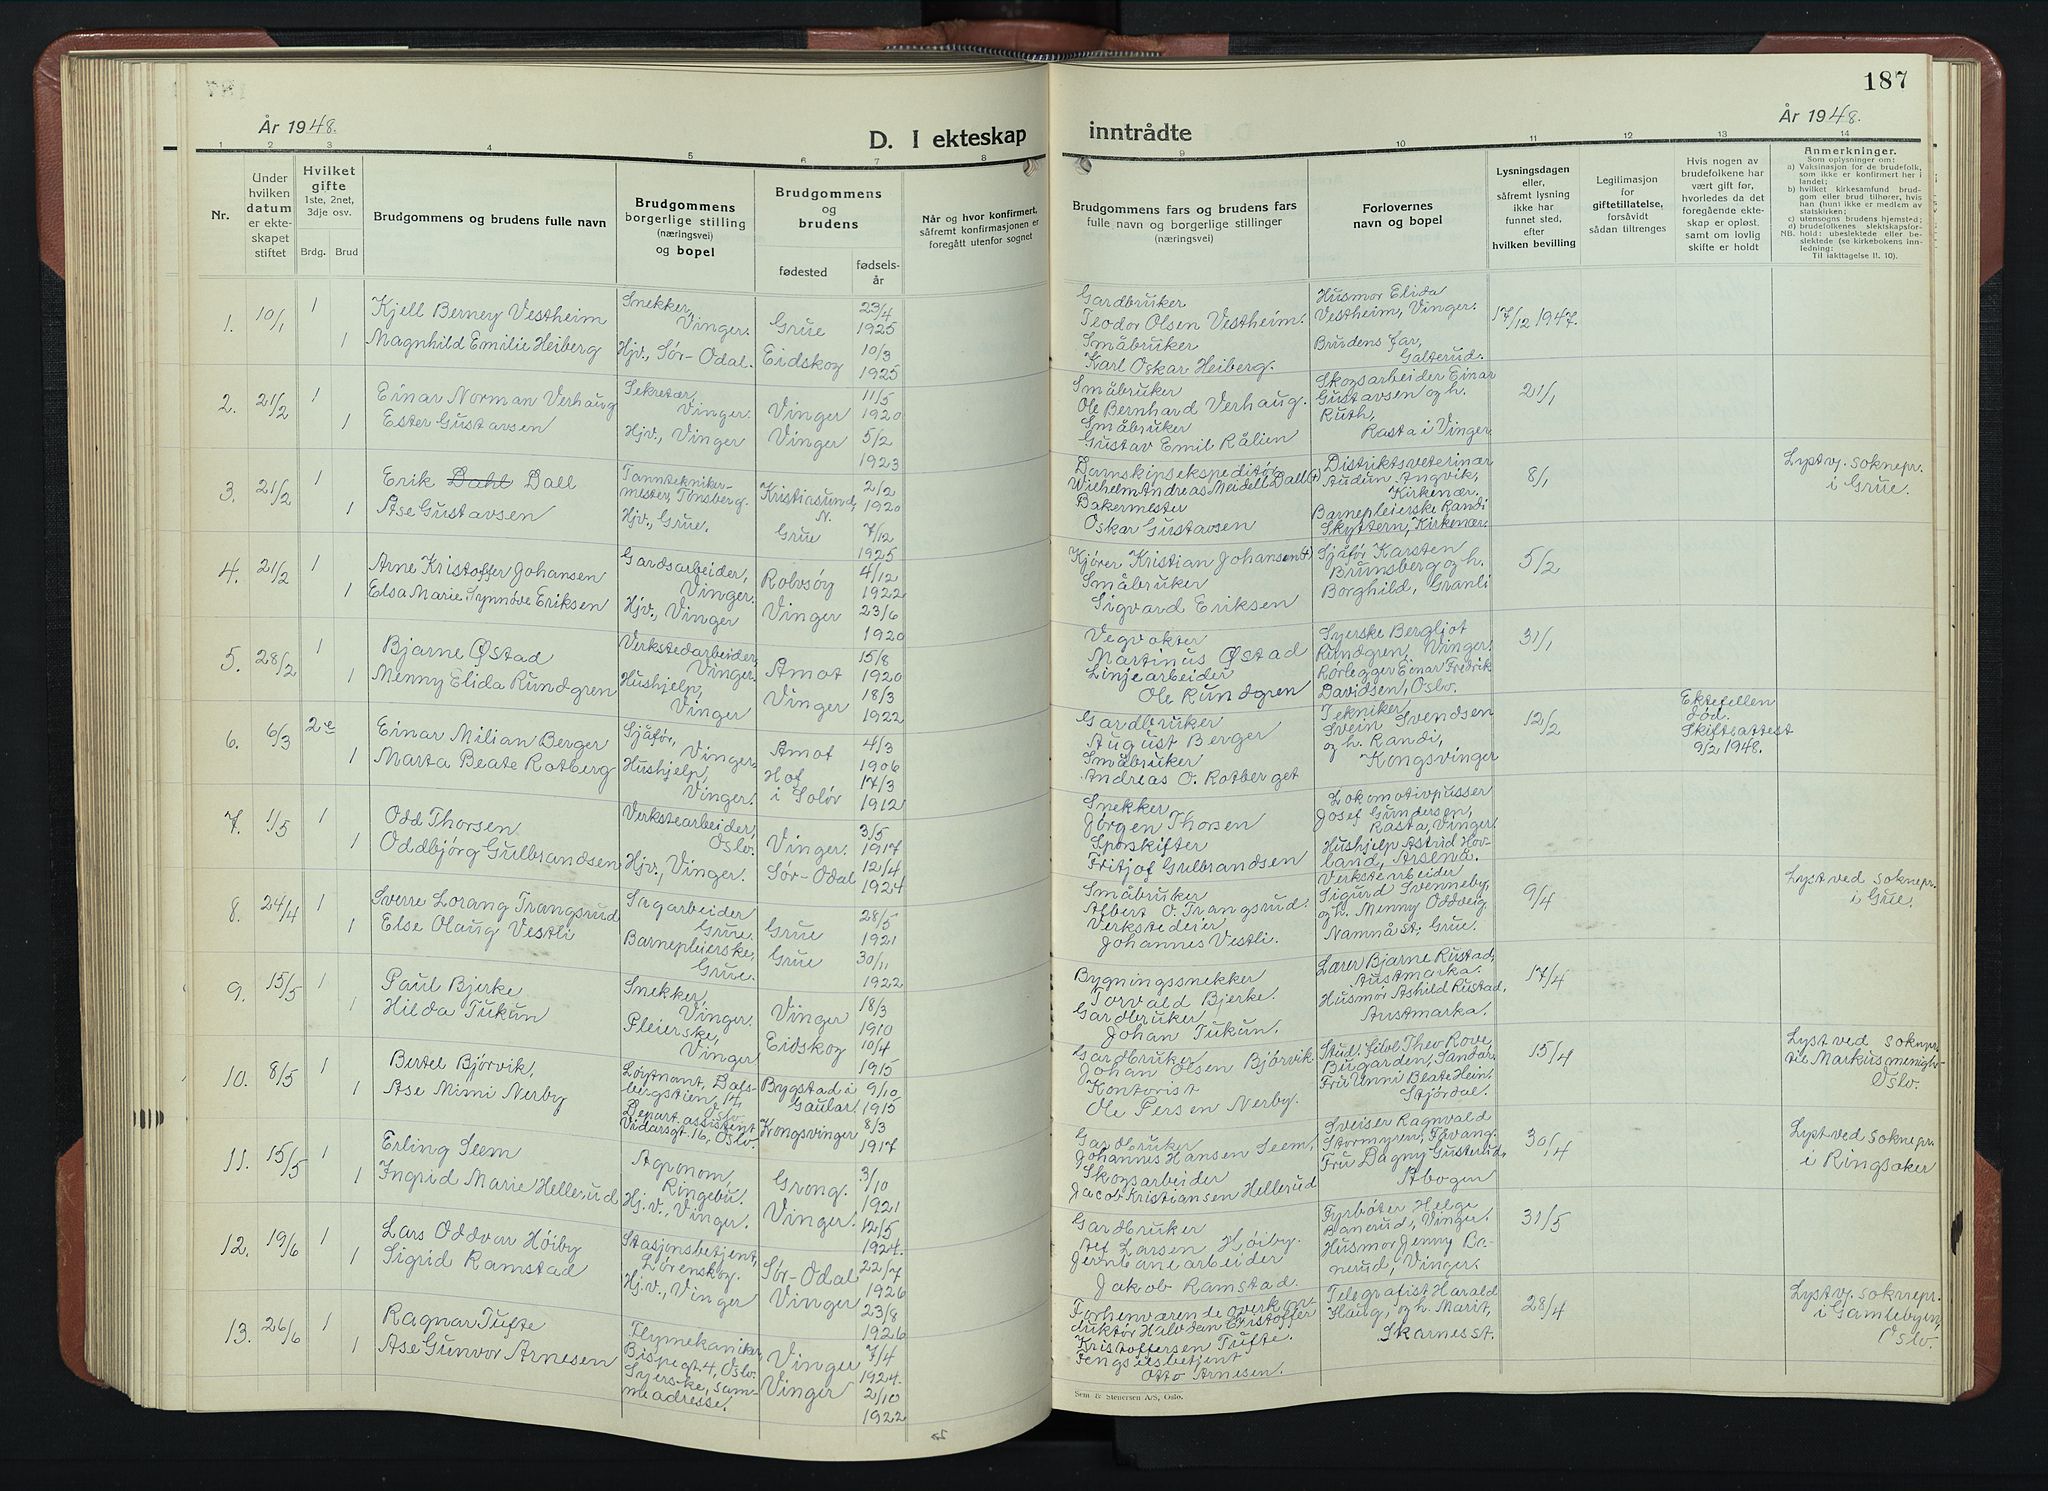 187
År 1948.
År 1948.
D. I ekteskap inntrådte
1 2 3 4 5 6 7 8 9 10 11 12 13 14
Nr.
Under
hvilken
datum
er ekte-
skapet
stiftet
Hvilket
gifte
1ste, 2net,
3dje osv.
Brdg. Brud
Brudgommens og brudens fulle navn
Brudgommens
borgerlige stilling
(næringsvei)
og bopel
Brudgommens
og
brudens
fødested
fødsels-
år
Når og hvor konfirmert,
såfremt konfirmasjonen er
foregått utenfor sognet
Brudgommens fars og brudens fars
fulle navn og borgerlige stillinger
(næringsvei)
Forlovernes
navn og bopel
Lysningsdagen
eller,
såfremt lysning
ikke har
funnet sted,
efter
hvilken bevilling
Legitimasjon
for
giftetillatelse,
forsåvidt
sådan tiltrenges
Hvis nogen av
brudefolkene har
vært gift før,
hvorledes da det
foregående ekte-
skap er opløst,
samt om lovlig
skifte er holdt
Anmerkninger.
Som oplysninger om:
a) Vaksinasjon for de brudefolk,
som ikke er konfirmert her i
landet;
b) hvilket kirkesamfund brud-
gom eller brud tilhører, hvis
han (hun) ikke er medlem av
statskirken;
c) utensogns brudens hjemsted;
d) brudefolkenes slektskapsfor-
NB. hold: ubeslektede eller be-
slektede (se kirkebokens inn-
ledning:
Til iakttagelse II. 10).
1. 10/1 1 Kjell Berney Vestheim
1 Magnhild Emilie Heiberg
Snekker,
Vinger.
Hjv., Sør-Odal.
Grue
Eidskog
23/4
1925
10/3
1925
Gardbruker
Teodor Olsen Vestheim.
Småbruker
Karl Oskar Heiberg.
Husmor Elida
Vestheim, Vinger.
Brudens far,
Galterud.
17/12 1947.
2. 21/2 1 Einar Norman Verhaug
1 Ester Gustavsen
Sekretær,
Vinger.
Hjv., Vinger
Vinger
Vinger
11/5
1920
5/2
1923
Småbruker
Ole Bernhard Verhaug.
Småbruker
Gustav Emil Rålien
Skogsarbeider Einar
Gustavsen og h.
Ruth,
Rasta i Vinger
21/1
3. 21/2 1 Erik Dahl Dall
1 Åse Gustavsen
Tanntekniker-
mester, Tønsberg.
Hjv., Grue.
Kristiasund
N.
Grue
2/2
1920
7/12
1925
Damskipsekspeditør
Wilhelm Andreas Meidell Dall (+)
Bakermester
Oskar Gustavsen
Distriktsveterinær
Audun Angvik,
Kirkenær.
Barnepleierske Randi
Skyttern, Kirkenær.
8/1
Lyst v. soknepr.
i Grue.
4. 21/2 1 Arne Kristoffer Johansen
1 Elsa Marie Synnøve Eriksen
Gardsarbeider,
Vinger.
Hjv., Vinger
Rolvsøy
Vinger
4/12
1922
23/6
1920
Kjører Kristian Johansen +
Småbruker
Sigvard Eriksen
Sjåfør Karsten
Brunsberg og h.
Borghild, Granli
5/2
5. 28/2 1 Bjarne Østad
1 Menny Elida Rundgren
Verkstedarbeider,
Vinger.
Hushjelp,
Vinger
Åmot
Vinger
15/8
1920
18/3
1922
Vegvokter
Martinus Østad
Linjearbeider
Ole Rundgren
Syerske Bergljot
Rundgren, Vinger.
Rørlegger Einar Fredrik
Davidsen, Oslo.
31/1
6. 6/3 2e Einar Milian Berger
1 Marta Beate Rotberg
Sjåfør,
Vinger.
Hushjelp,
Vinger.
Åmot
Hof
i Solør
4/3
1906
17/3
1912
Gardbruker
August Berger
Småbruker
Andreas O. Rotberget
Tekniker
Svein Svendsen
og h. Randi,
Kongsvinger
12/2
Ektefellen
død.
Skifteattest
9/2 1948.
7. 1/5 1 Odd Thorsen
1 Oddbjørg Gulbrandsen
Verkstearbeider,
Oslo.
Hjv., Vinger.
Vinger.
Sør-Odal
3/5
1917
12/4
1924
Snekker
Jørgen Thorsen
Sporskifter
Fritjof Gulbrandsen
Lokomotivpusser
Josef Gundersen,
Rasta, Vinger.
Hushjelp Astrid Hov-
land, Arsenå.
8. 24/4 1 Sverre Lorang Trangsrud
1 Else Olaug Vestli
Sagarbeider
Grue.
Barnepleierske,
Grue.
Grue
Grue
28/5
1921
30/11
1922
Småbruker
Albert O. Trangsrud.
Verkstedeier
Johannes Vestli.
Verkstearbeider
Sigurd Svenneby,
og h. Menny Oddveig
Namnå st., Grue.
9/4
Lyst ved soknepr.
i Grue.
9. 15/5 1 Paul Bjerke
1 Hilda Tukun
Snekker,
Vinger.
Pleierske,
Vinger
Vinger
Eidskog
18/3
1910
10/4
1915
Bygningssnekker
Torvald Bjerke.
Gardbruker
Johan Tukun.
Lærer Bjarne Rustad,
Austmarka.
Husmor Åshild Rustad,
Austmarka.
17/4
10. 8/5 1 Bertel Bjørvik,
1 Åse Mimi Nerby
Løytnant, Dals-
bergstien, 14
Oslo
Depart.assistent
Vidarsgt. 16, Oslo.
Bygstad i
Gaular.
Kongsvinger
9/10
1915
8/3
1917
Gardbruker
Johan Olsen Bjørvik
Kontorist
Ole Persen Nerby.
Stud. filol Theo Rove,
Bugarden, Sandar.
Fru Unni Beate Hein,
Stjørdal.
15/4
Lyst ved soknepr.
til Markus menigh.
Oslo.
11. 15/5 1 Erling Seem
1 Ingrid Marie Hellerud
Agronom,
Ringebu.
Hj.v., Vinger.
Grong.
Vinger.
3/10
1921
12/5
1924.
Gardbruker
Johannes Hansen Seem,
Skogsarbeider
Jacob Kristiansen Hellerud
Sveiser Ragnvald
Stormyren, Fåvang.
Fru Dagny Gusterud,
Åbogen
30/4
Lyst ved soknepr.
i Ringsaker
12. 19/6 1 Lars Oddvar Høiby
1 Sigrid Ramstad
Stasjonsbetjent,
Lørenskog.
Hj.v., Vinger
Sør-Odal
Vinger
22/7
1926
23/8
1926
Gardbruker
Alf Larsen Høiby.
Jernbanearbeider
Jakob Ramstad.
Fyrbøter Helge
Banerud, Vinger.
Husmor Jenny Ba-
nerud, Vinger.
31/5
13. 26/6 1 Ragnar Tufte
1 Åse Gunvor Arnesen
Flymekaniker,
Bispegt. 4, Oslo.
Syerske, sam-
me adresse.
Vinger
Vinger
7/4
1924.
2/10
1922
Forhenværende overkon-
duktør Halvdan Kristoffer
Kristoffersen Tufte.
Fengselsbetjent
Otto Arnesen.
Telegrafist Harald
Haug, og h. Marit,
Skarnes st.
28/4
Lyst v. soknepr.
i Gamlebyen,
Oslo.
Sem & Stenersen A/S, Oslo.